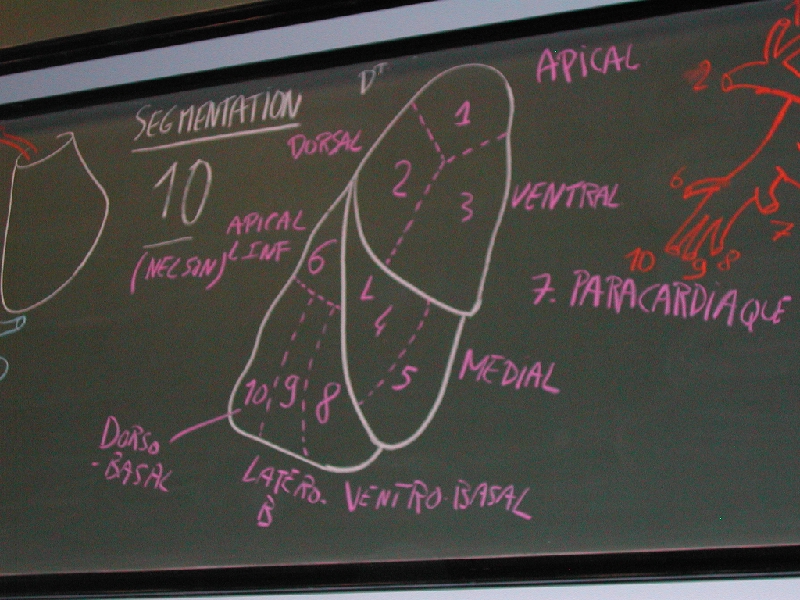 SEGMENTATION
10
DT
APICAL
DORSAL
1
2
3
VENTRAL
APICAL
L INF
(NELSON)
6
L
4
5
7. PARACARDIAQUE
MEDIAL
10
9
8
DORSO
-BASAL
LATÉRO-
B
VENTRO-BASAL
2
6
10
9
8
7